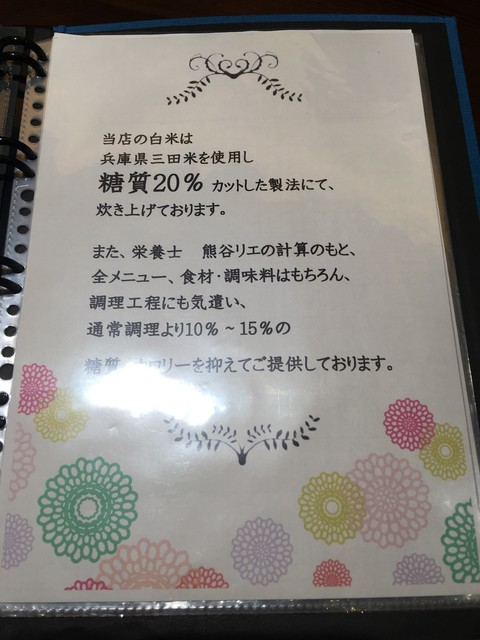 当店の白米は
兵庫県三田米を使用し
糖質20% カットした製法にて、
炊き上げております。
また、栄養士 熊谷リエの計算のもと、
全メニュー、食材・調味料はもちろん、
調理工程にも気遣い、
通常調理より10%~15%の
糖質 カロリーを抑えてご提供しております。